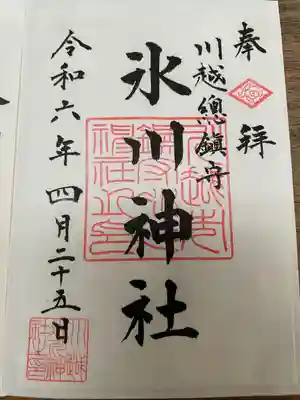 奉拝
川越總鎮守
氷川神社
令和六年四月二十五日